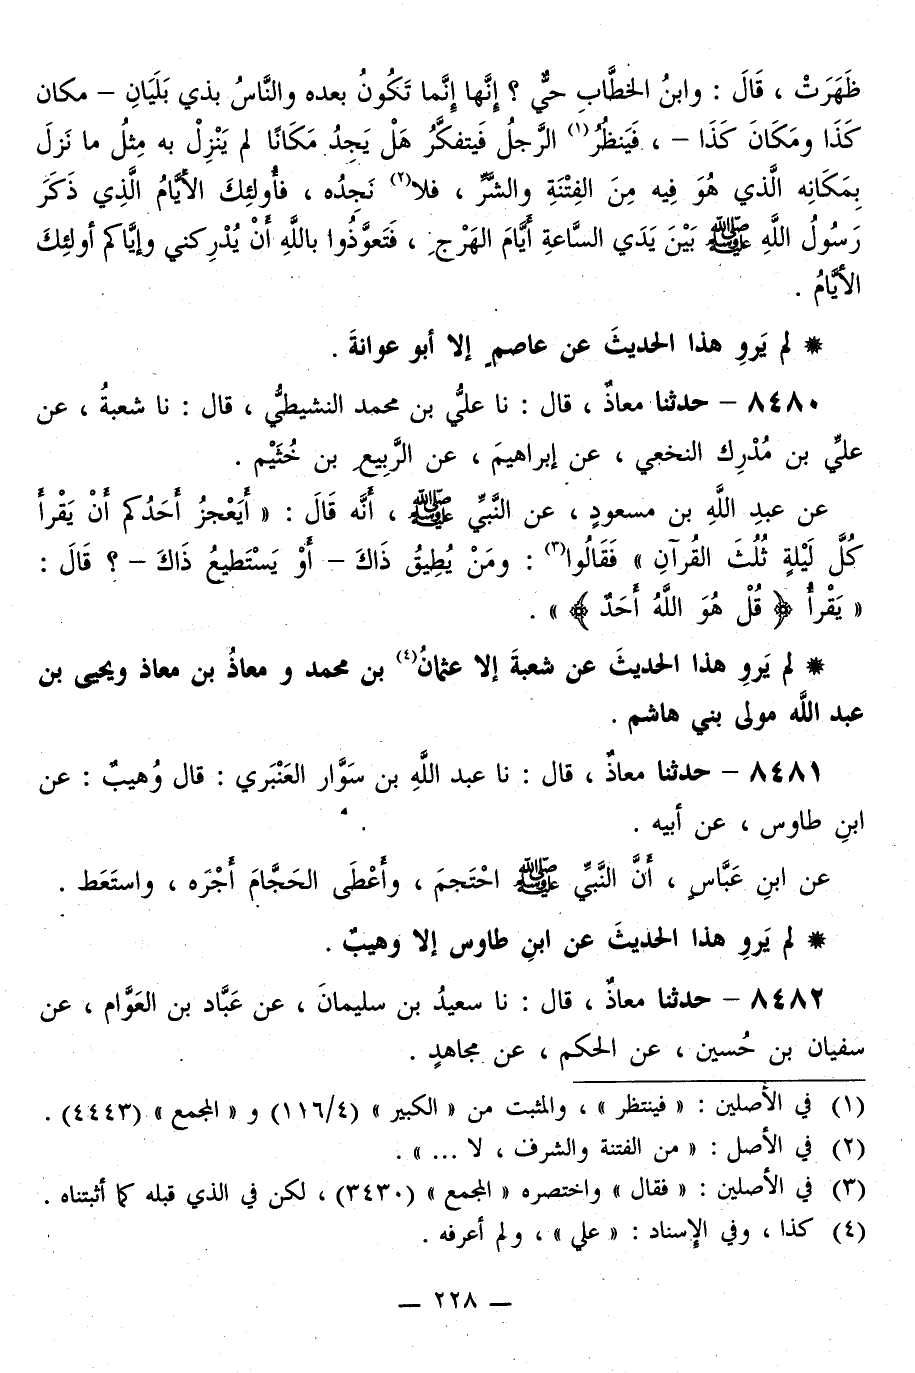 ظَهَرَتْ ، قَالَ : وابنُ الخطَّابِ حيٌّ ؟ إِنَّها إِنَّما تَكُونُ بعده والنَّاسُ بذي بَلَيَانِ – مكان
كَذَا ومَكَانَ كَذَا – ، فَيَنظُرُ(١) الرَّجلُ فَيتفكَّرُ هَلْ يَجِدُ مَكَانًا لم يَنْزِلْ به مِثلُ ما نزلَ
بِمَكَانِه الَّذي هُوَ فِيه مِنَ الفِتْنَةِ والشَّرِّ ، فلا(٢) نَجِدُه ، فأُولئِكَ الأَيَّامُ الَّذِي ذَكَرَ
رَسُولُ اللَّهِ ﷺ بَيْنَ يَدَي السَّاعةِ أَيَّامَ الهَرْجِ ، فَتَعوَّذُوا باللَّهِ أَنْ يُدْرِكني وإيَّاكم أولئِكَ
الأيَّامُ .
* لم يَروِ هذا الحديثَ عن عاصمٍ إلا أبو عوانةَ .
٨٤٨٠ – حدثنا معاذٌ ، قال : نا عليُّ بن محمد النشيطيُّ ، قال : نا شعبةُ ، عن
عليِّ بن مُدْرِك النخعي ، عن إبراهيمَ ، عن الرَّبِيعِ بن خُثَيْم .
عن عبدِ اللَّهِ بن مسعودٍ ، عن النَّبيِّ ﷺ ، أنَّه قَالَ : « أَيَعْجزُ أَحَدُكم أَنْ يَقْرأَ
كُلَّ لَيْلةٍ ثُلُثَ القُرآنِ » فَقَالُوا(٣) : ومَنْ يُطِيقُ ذَاكَ – أَوْ يَسْتَطيعُ ذَاكَ – ؟ قَالَ :
« يَقْرأُ ﴿ قُلْ هُوَ اللَّهُ أَحَدٌ ﴾ » .
* لم يَروِ هذا الحديثَ عن شعبةَ إلا عثمانُ(٤) بن محمد و معاذُ بن معاذ ويحيى بن
عبد اللَّه مولى بني هاشم .
٨٤٨١ – حدثنا معاذٌ ، قال : نا عبد اللَّهِ بن سَوَّار العَنْبَري : قال وُهيبٌ : عن
ابنِ طاوس ، عن أبيه .
عن ابنِ عَبَّاسٍ ، أَنَّ النَّبيِّ ﷺ احْتَجمَ ، وأَعْطَى الحَجَّامَ أَجْرَه ، واستَعَط .
* لم يَروِ هذا الحديثَ عن ابنِ طاوس إلا وهيبٌ .
٨٤٨٢ – حدثنا معاذٌ ، قال : نا سعيدُ بن سليمانَ ، عن عَبَّاد بن العَوَّام ، عن
سفيان بن حُسين ، عن الحكم ، عن مجاهدٍ .
(١) في الأصلين : « فينتظر » ، والمثبت من « الكبير » (٤/١١٦) و « المجمع » (٤٤٤٣) .
(٢) في الأصل : « من الفتنة والشرف ، لا ... » .
(٣) في الأصلين : « فقال » واختصره « المجمع » (٣٤٣٠) ، لكن في الذي قبله كما أثبتناه .
(٤) كذا ، وفي الإسناد : « علي » ، ولم أعرفه .
— ٢٢٨ —